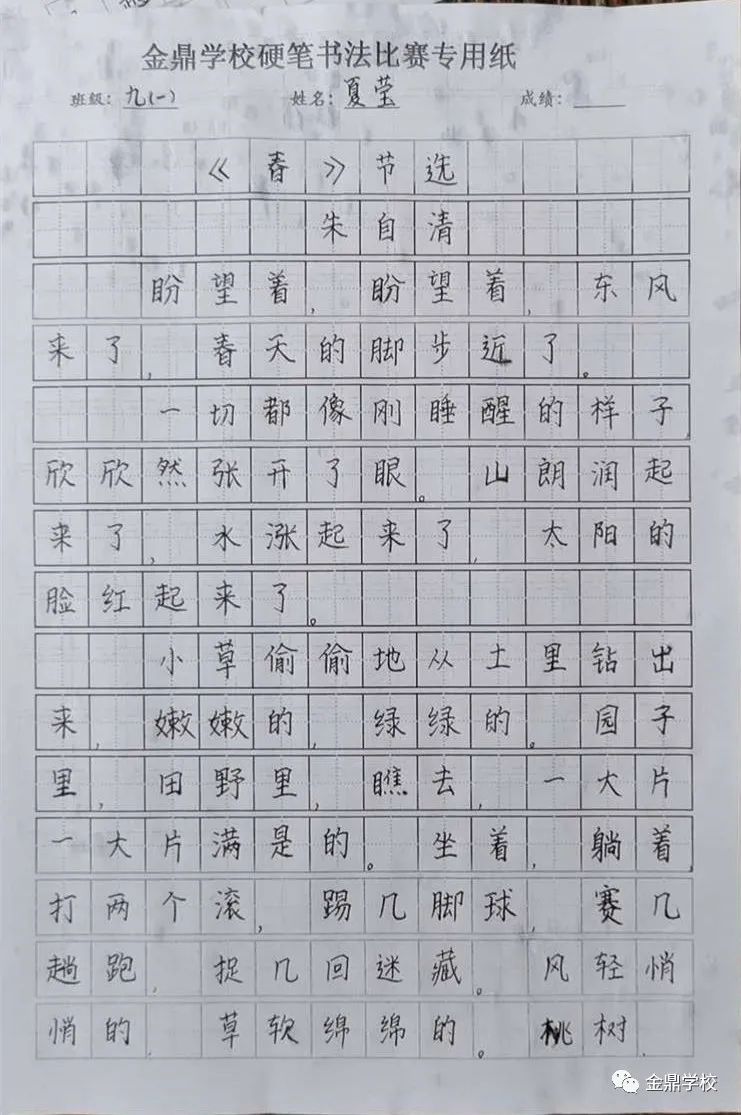 金鼎学校硬笔书法比赛专用纸
班级：九(一) 姓名：夏莹 成绩：
《春》节选
朱自清
盼望着，盼望着，东风
来了，春天的脚步近了。
一切都像刚睡醒的样子，
欣欣然张开了眼。山朗润起
来了，水涨起来了，太阳的
脸红起来了。
小草偷偷地从土里钻出
来，嫩嫩的，绿绿的。园子
里，田野里，瞧去，一大片
一大片满是的。坐着，躺着，
打两个滚，踢几脚球，赛几
趟跑，捉几回迷藏。风轻悄
悄的，草软绵绵的。桃树、
金鼎学校